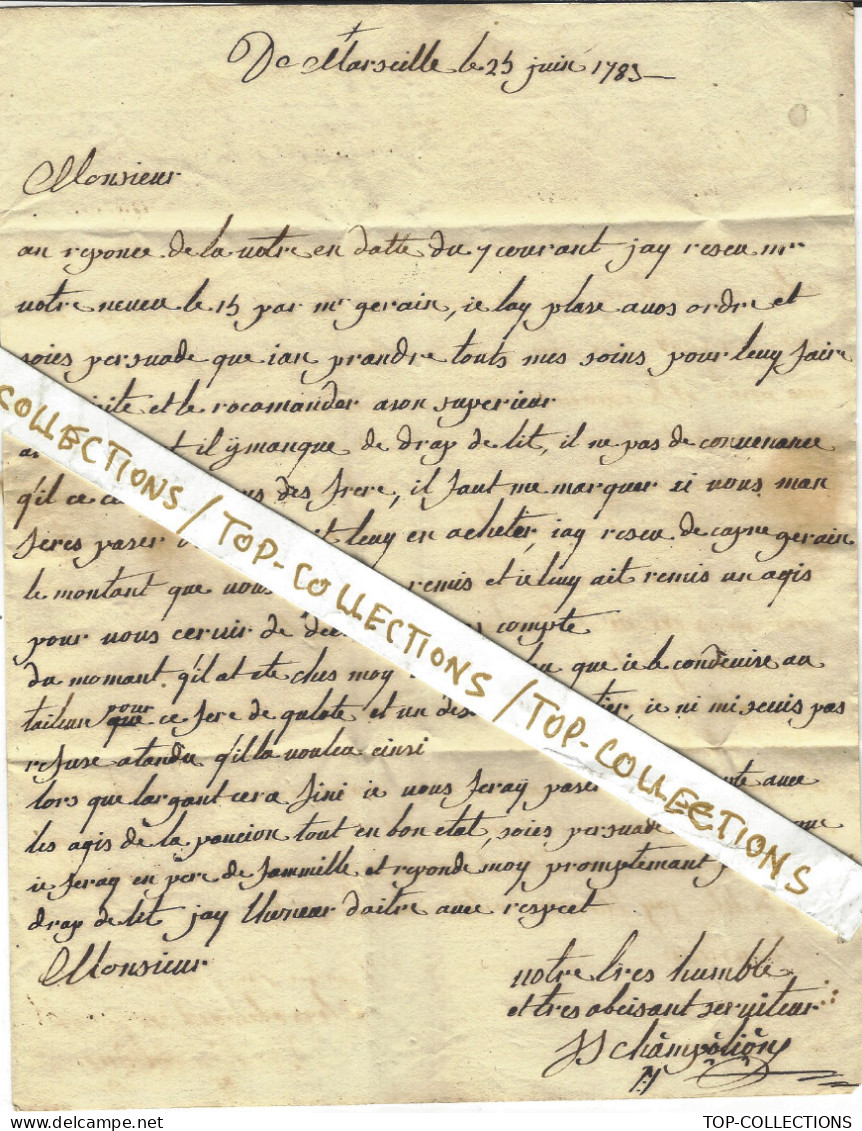 De Marseille le 25 juin 1785
Monsieur
an reponce de la votre en datte du 7 courant jay reseu mr
votre neveu le 15 par mr gerain, ie lay plase a vos ordre et
soies persuade que ian prandre touts mes soins pour leuy faire
et le rocomander a son superieur
il y manque de drap de lit, il ne pas de convenance
q'il ce des frere, il faut me marquer si vous man
feres paser leuy en acheter, iay reseu de capne gerain
le montant que vous remis et ie leuy ait remis un aqis
pour vous cervir de compte
du momant q'il at ete ches moy que ie le condeuise au
tailleur pour que ce fere de qulote et un ie ni mi seuis pas
refuse a tandu q'il la vouleu einsi
lors que largant cera fini ie vous feray paser avec
les aqis de la pancion tout en bon etat, soies persuade que
ie feray en pere de fammille et reponde moy promptemant
drap de lit jay lhurneur daitre avec respect
Monsieur
votre tres humble
et tres obeisant serviteur
JS champolion
COLLECTIONS / TOP-COLLECTIONS / TOP-COLLECTIONS
TOP-COLLECTIONS